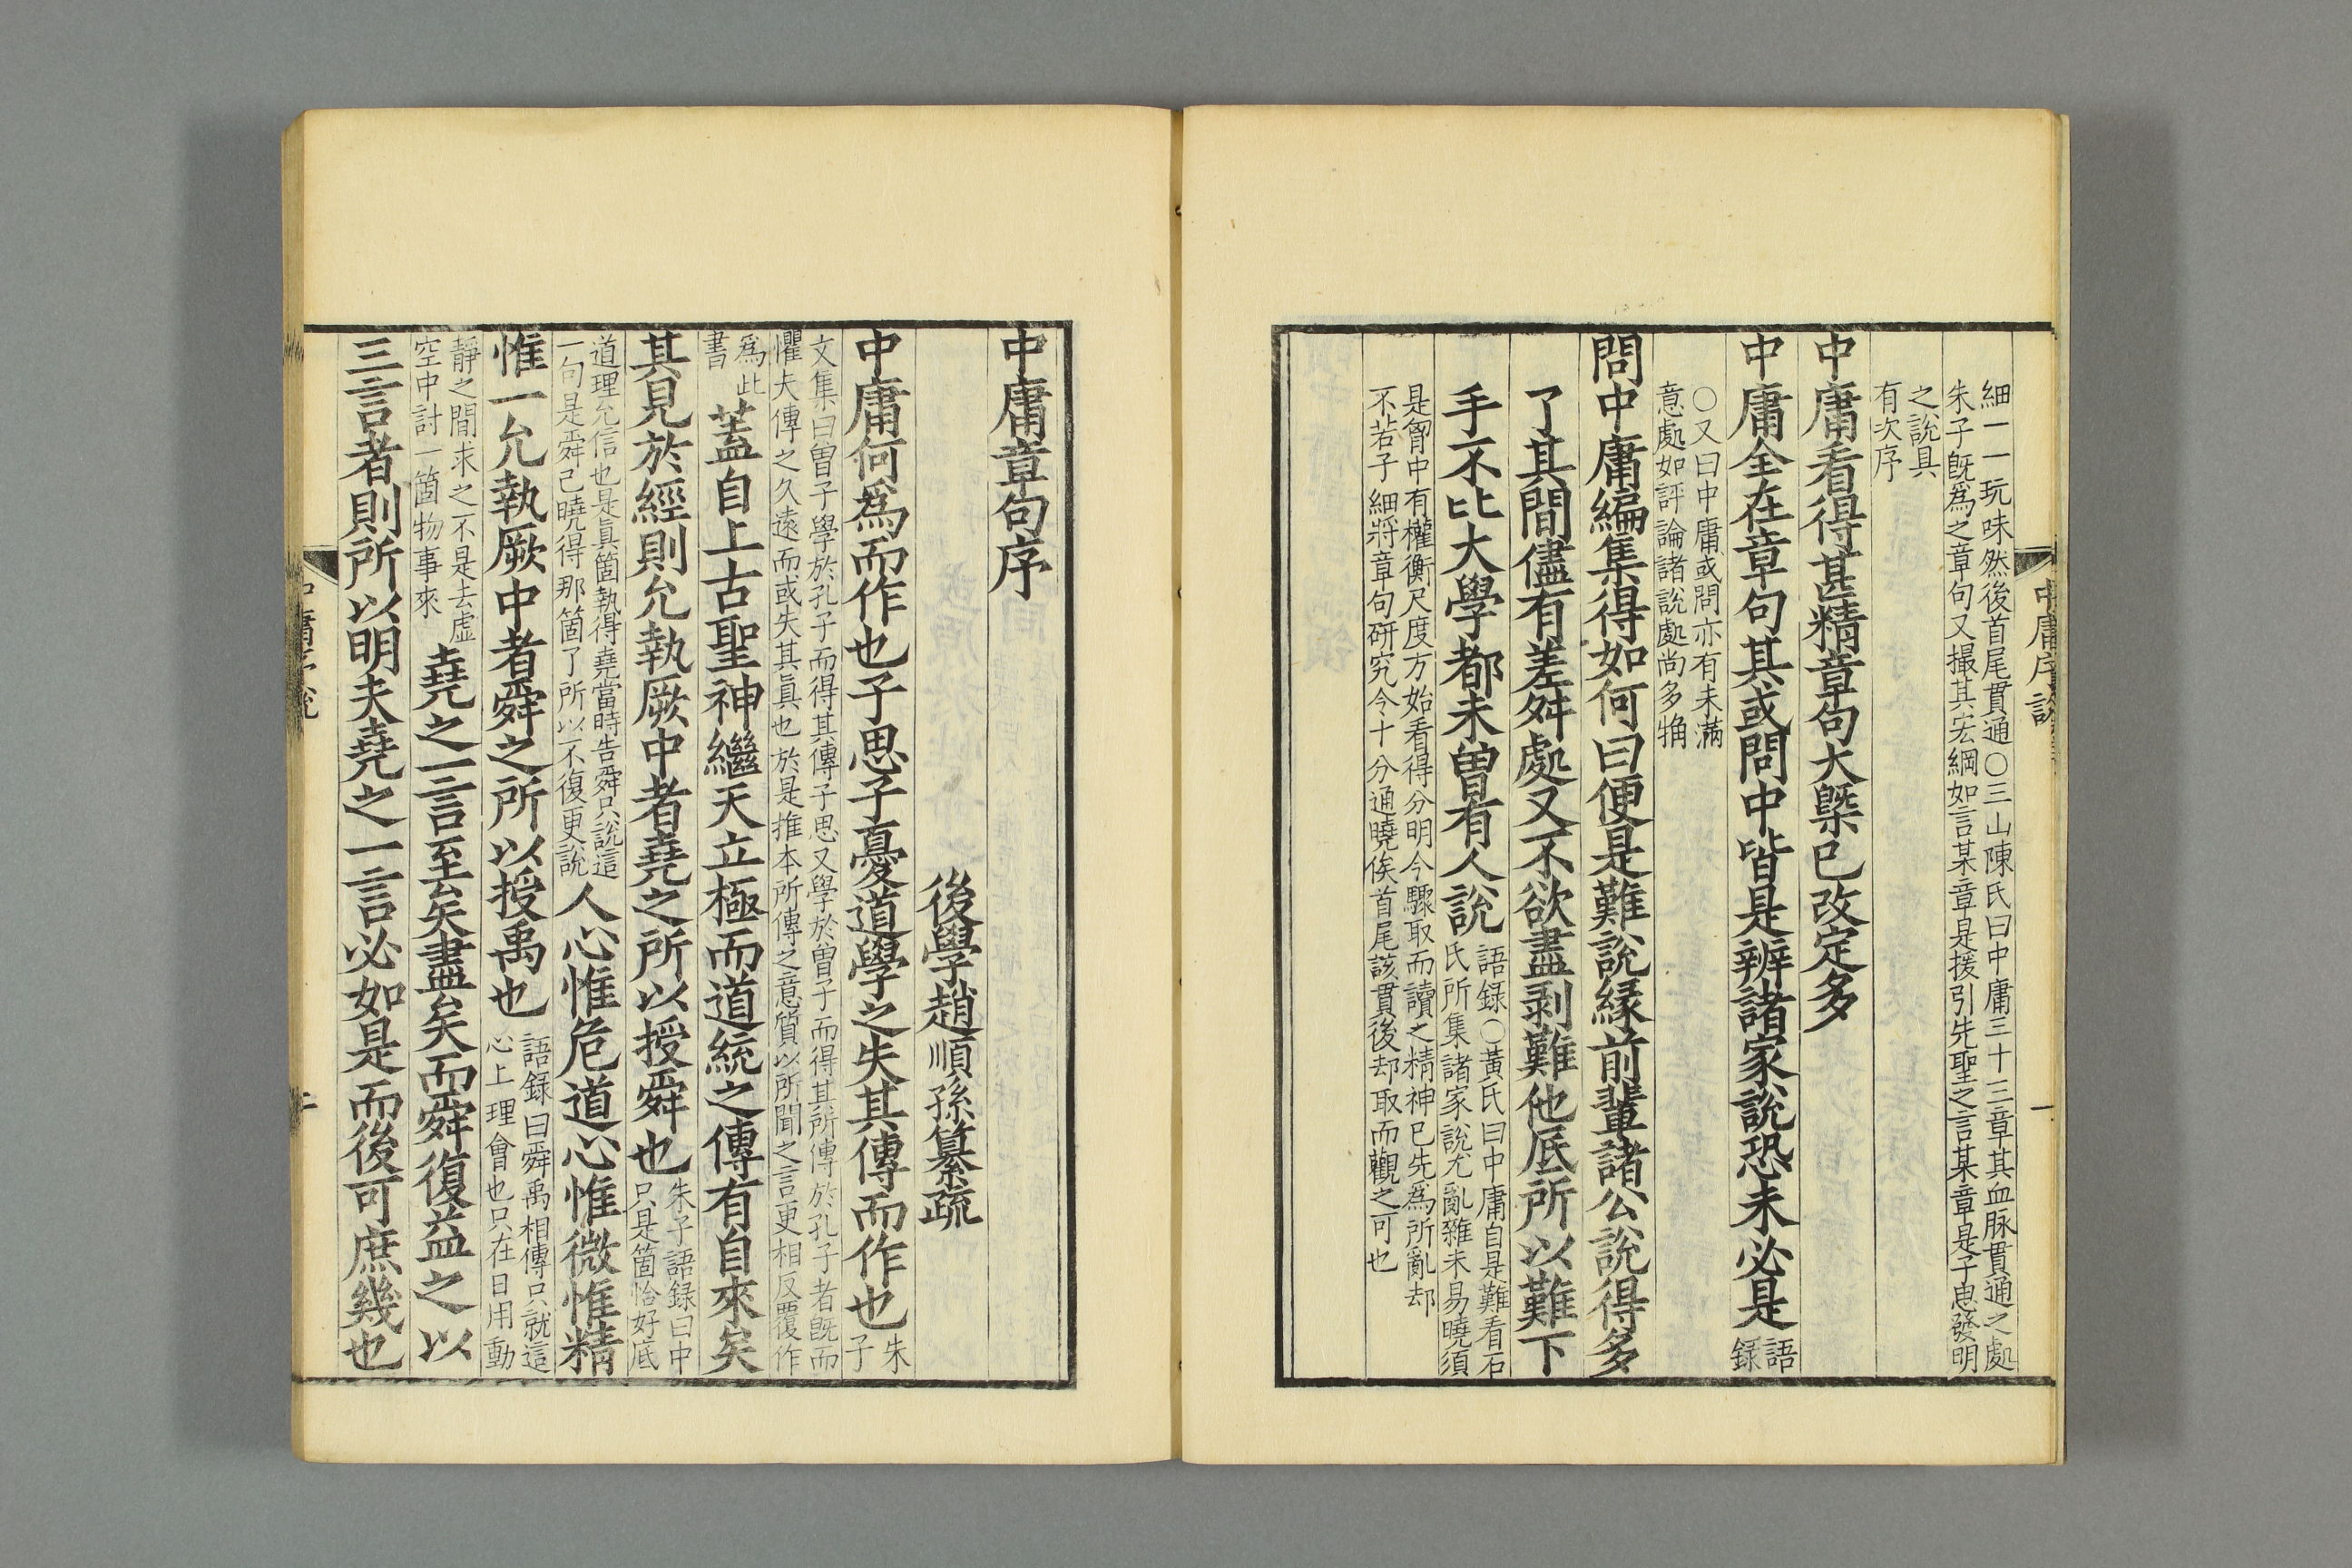 中庸序說
一
細一一玩味然後首尾貫通○三山陳氏曰中庸三十三章其血脉貫通之處
朱子旣爲之章句又撮其宏綱如言某章是援引先聖之言某章是子思發明
之說具
有次序
中庸看得甚精章句大槩已改定多
中庸全在章句其或問中皆是辨諸家說恐未必是
語
録
○又曰中庸或問亦有未滿
意處如評論諸說處尚多觕
問中庸編集得如何曰便是難說縁前輩諸公說得多
了其間儘有差舛處又不欲盡剥難他厎所以難下
手不比大學都未曽有人說
語録○黃氏曰中庸自是難看石
氏所集諸家說尤亂雜未易曉須
是胷中有權衡尺度方始看得分明今驟取而讀之精神已先爲所亂却
不若子細將章句研究令十分通曉俟首尾該貫後却取而觀之可也
中庸章句序
後學趙順孫纂疏
中庸何爲而作也子思子憂道學之失其傳而作也
朱
子
文集曰曽子學於孔子而得其傳子思又學於曽子而得其所傳於孔子者旣而
懼夫傳之久遠而或失其眞也於是推本所傳之意質以所聞之言更相反覆作
爲此
書
蓋自上古聖神繼天立極而道統之傳有自來矣
其見於經則允執厥中者堯之所以授舜也
朱子語録曰中
只是箇恰好底
道理允信也是眞箇執得堯當時告舜只說這
一句是舜已曉得那箇了所以不復更說
人心惟危道心惟微惟精
惟一允執厥中者舜之所以授禹也
語録曰舜禹相傳只就這
心上理會也只在日用動
靜之間求之不是去虚
空中討一箇物事來
堯之一言至矣盡矣而舜復益之以
三言者則所以明夫堯之一言必如是而後可庶幾也